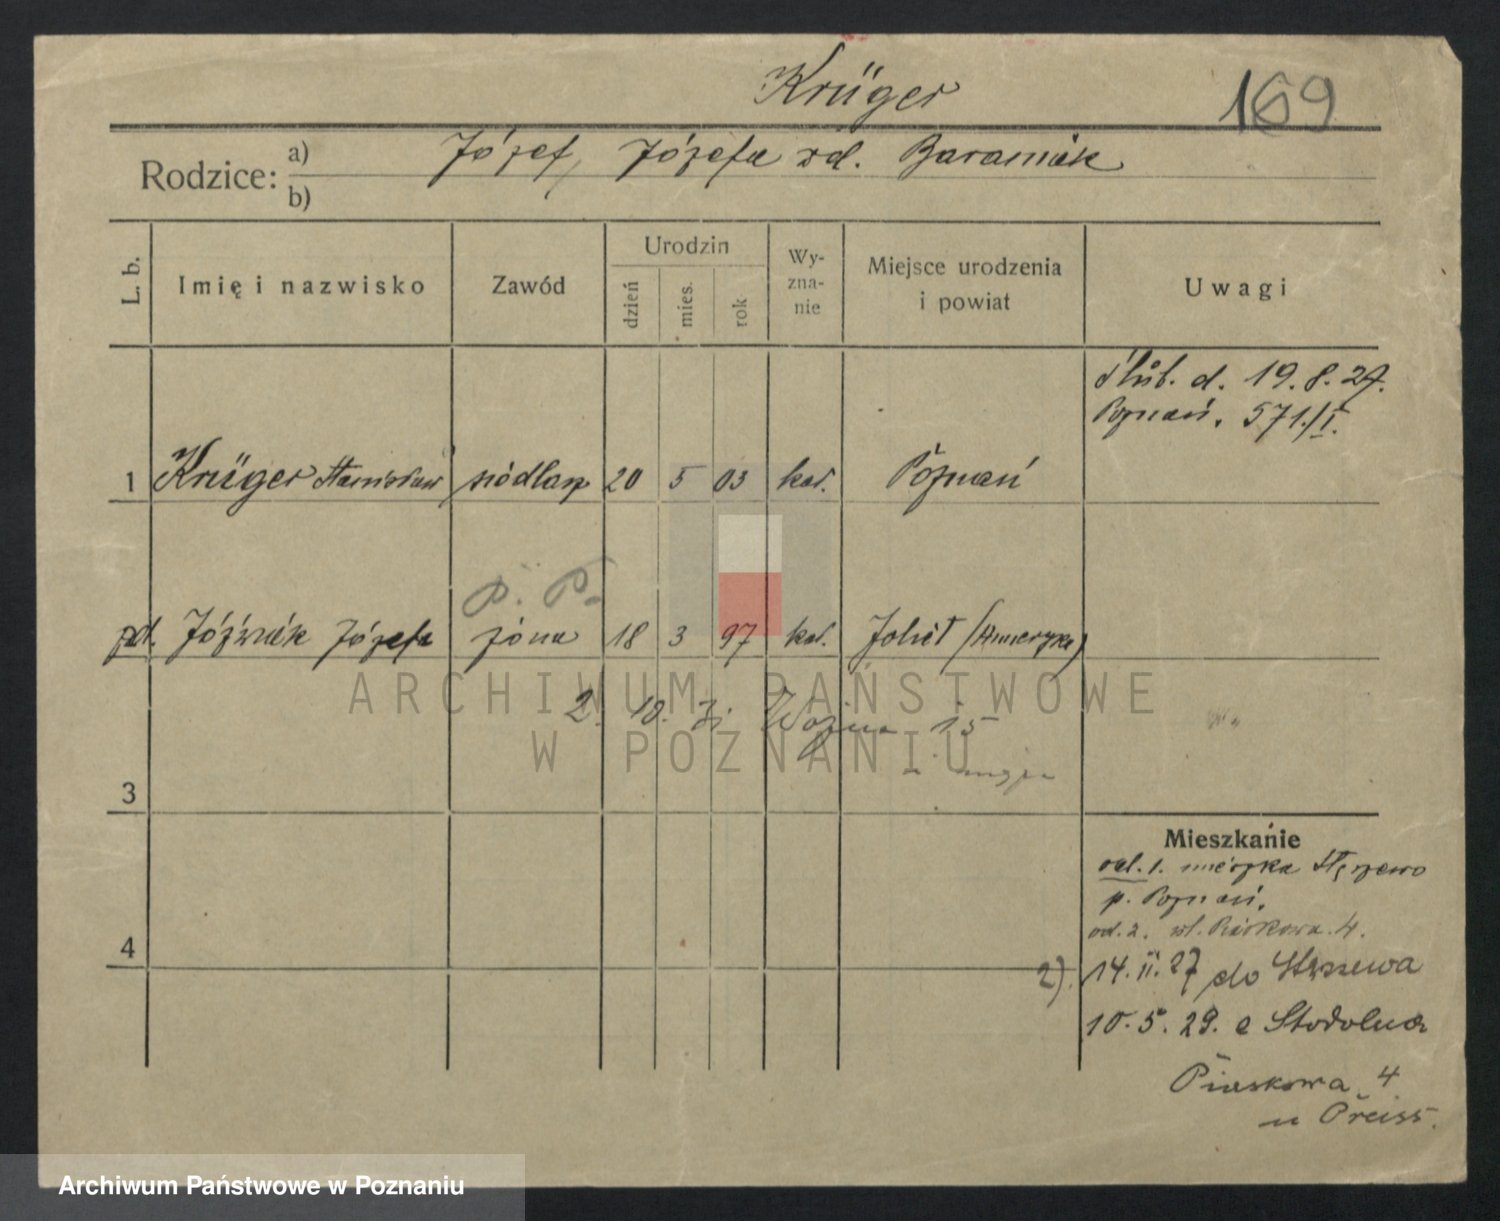 Krüger
169
Rodzice: a) Józef, Józefa zd. Baraniak
b)
L. b.
Imię i nazwisko
Zawód
Urodzin
dzień
mies.
rok
Wy-
zna-
nie
Miejsce urodzenia
i powiat
Uwagi
ślub. d. 19. 8. 27.
Poznań. 571./I.
1 Krüger Stanisław siodlarz 20 5 03 kat. Poznań
P. P.
zd. Jóźwiak Józefa żona 18 3 97 kat. Joliet (Ameryka)
2. 10. Wojna 15
3
Mieszkanie
od. 1. mieszka Stęszewo
p. Poznań.
od. 2. ul. Piaskowa. 4.
4
2). 14. II. 27 do Stęszewa
10. 5. 29. z Stodolna
Piaskowa 4
u Preiss.
ARCHIWUM PAŃSTWOWE
W POZNANIU
Archiwum Państwowe w Poznaniu